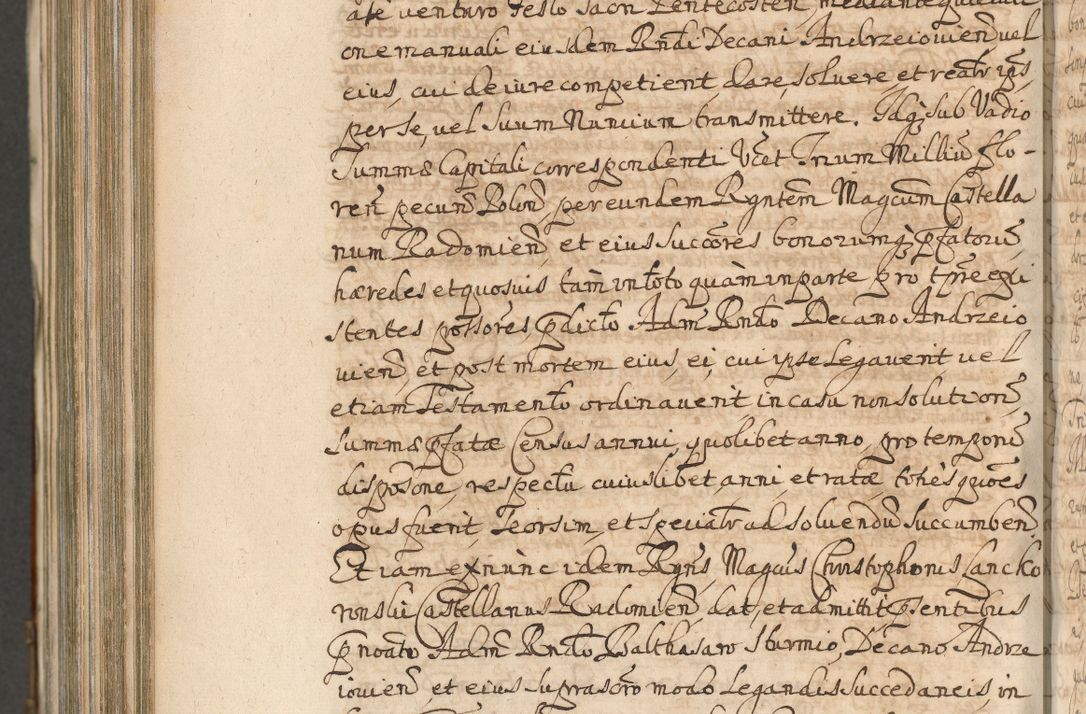 ate venturo Festo Sacri Pentecosten mediante
one manuali eiusdem Rndi Decani Andrzeiouien̄ uel
eius, cui de iure competierit, dare, soluere, et realr ips̄
per se, uel suum Nuncium transmittere. Idq; sub Vadio
Summæ Capitali correspondenti Vz̄et Trium Milliū flo-
ren̄ pecun̄ Polon̄ per eundem Rgntem̄ Magcum̄ Castella
num Radomien̄, et eius succōres bonorumq; p̄fatorū
hæredes et quosuis tàm in toto quàm in parte pro tp̄re exi
stentes possōres, p̄dicto Adm̄ Rndo Decano Andrzeio
uien̄, et post mortem eius, ei, cui ipse Legauerit uel
etiam Testamento ordinauerit in casu non solutionis̄,
Summæ p̄fatæ Census annui, quolibet anno, pro temporū
disposōne, respectu cuiuslibet anni, et ratæ toties quōes
opus fuerit, seorsim, et specialr ad soluendū succumben̄.
Et iam ex nùnc idem Rgns̄ Magcus Christophorus Lancko
ronski Castellanus Radomien̄, dat, et admittit p̄sentibus
p̄noāto Adm̄ Rndo Balthasaro Sturmio, Decano Andrze
iouien̄ et eius suprascrō modo Legandis succedaneis in